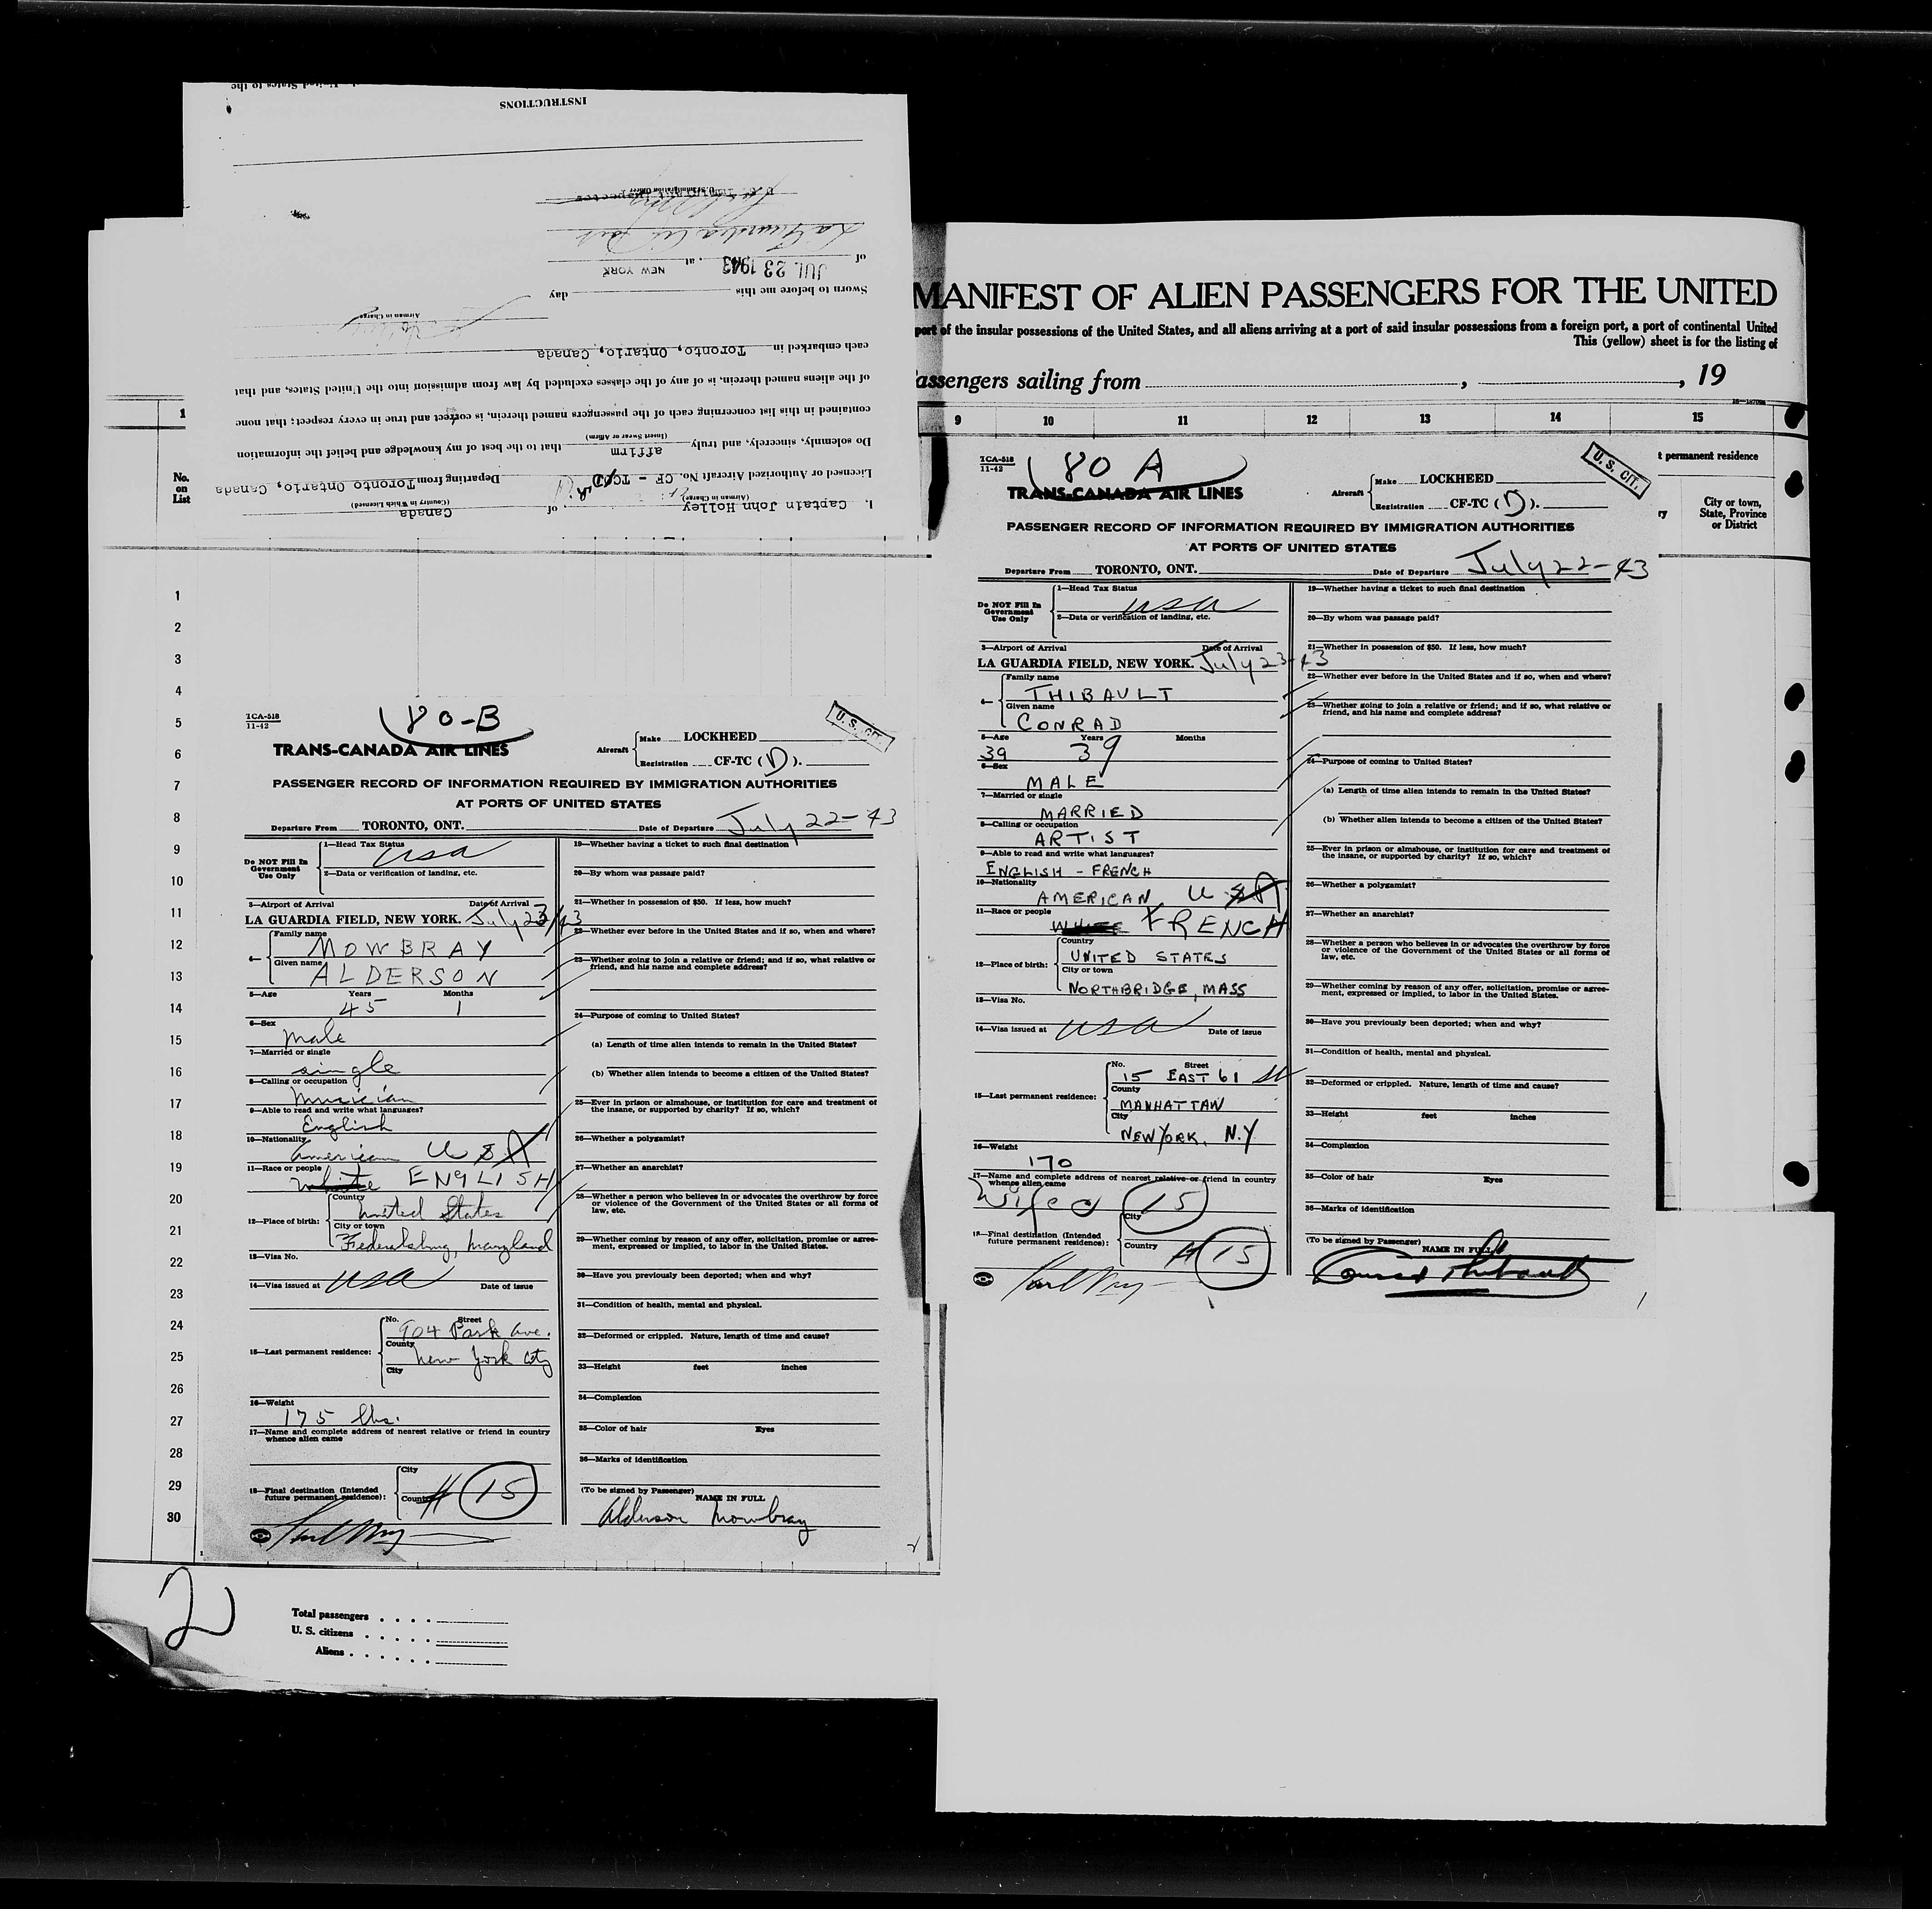 United States to the
INSTRUCTIONS
U.S. Immigration Officer
La Guardia Air Port
of JUL 23 1943, at NEW YORK
Sworn to before me this day
Airman in Charge
each embarked in Toronto, Ontario, Canada
of the aliens named therein, is of any of the classes excluded by law from admission into the United States, and that
contained in this list concerning each of the passengers named therein, is correct and true in every respect; that none
(Insert Swear or Affirm)
Do solemnly, sincerely, and truly affirm that to the best of my knowledge and belief the information
Licensed or Authorized Aircraft No. CF - TC D Departing from Toronto Ontario, Canada
(Airman in Charge) (Country in Which Licensed)
I, Captain John Holley of Canada
1
No.
on
List
1
2
3
4
5
6
7
8
9
10
11
12
13
14
15
16
17
18
19
20
21
22
23
24
25
26
27
28
29
30
TCA-518
11-42
80-B
U. S. CIT.
TRANS-CANADA AIR LINES
Aircraft
Make LOCKHEED
Registration CF-TC (D).
PASSENGER RECORD OF INFORMATION REQUIRED BY IMMIGRATION AUTHORITIES
AT PORTS OF UNITED STATES
Departure From TORONTO, ONT. Date of Departure July 22-43
Do NOT Fill In
Government
Use Only
1—Head Tax Status
usa
2—Data or verification of landing, etc.
3—Airport of Arrival Date of Arrival
LA GUARDIA FIELD, NEW YORK. July 23/43
4—
Family name
MOWBRAY
Given name
ALDERSON
5—Age Years Months
45 1
6—Sex
male
7—Married or single
single
8—Calling or occupation
musician
9—Able to read and write what languages?
English
10—Nationality
American USA
11—Race or people
white ENGLISH
12—Place of birth:
Country
United States
City or town
Federalsburg, Maryland
13—Visa No.
14—Visa issued at usa Date of issue
15—Last permanent residence:
No. Street
904 Park Ave.
County
New York City
City
16—Weight
175 lbs.
17—Name and complete address of nearest relative or friend in country
whence alien came
18—Final destination (Intended
future permanent residence):
City
Country
15
19—Whether having a ticket to such final destination
20—By whom was passage paid?
21—Whether in possession of $50. If less, how much?
22—Whether ever before in the United States and if so, when and where?
23—Whether going to join a relative or friend; and if so, what relative or
friend, and his name and complete address?
24—Purpose of coming to United States?
(a) Length of time alien intends to remain in the United States?
(b) Whether alien intends to become a citizen of the United States?
25—Ever in prison or almshouse, or institution for care and treatment of
the insane, or supported by charity? If so, which?
26—Whether a polygamist?
27—Whether an anarchist?
28—Whether a person who believes in or advocates the overthrow by force
or violence of the Government of the United States or all forms of
law, etc.
29—Whether coming by reason of any offer, solicitation, promise or agree-
ment, expressed or implied, to labor in the United States.
30—Have you previously been deported; when and why?
31—Condition of health, mental and physical.
32—Deformed or crippled. Nature, length of time and cause?
33—Height feet inches
34—Complexion
35—Color of hair Eyes
36—Marks of identification
(To be signed by Passenger)
NAME IN FULL
Alderson Mowbray
2
Total passengers
U. S. citizens
Aliens
MANIFEST OF ALIEN PASSENGERS FOR THE UNITED
port of the insular possessions of the United States, and all aliens arriving at a port of said insular possessions from a foreign port, a port of continental United
This (yellow) sheet is for the listing of
assengers sailing from , , 19
9 10 11 12 13 14 15
t permanent residence
City or town,
State, Province
or District
ry
TCA-518
11-42
80 A
U. S. CIT.
TRANS-CANADA AIR LINES
Aircraft
Make LOCKHEED
Registration CF-TC (D).
PASSENGER RECORD OF INFORMATION REQUIRED BY IMMIGRATION AUTHORITIES
AT PORTS OF UNITED STATES
Departure From TORONTO, ONT. Date of Departure July 22-43
Do NOT Fill In
Government
Use Only
1—Head Tax Status
usa
2—Data or verification of landing, etc.
3—Airport of Arrival Date of Arrival
LA GUARDIA FIELD, NEW YORK. July 23-43
4—
Family name
THIBAULT
Given name
CONRAD
5—Age Years Months
39 39
6—Sex
MALE
7—Married or single
MARRIED
8—Calling or occupation
ARTIST
9—Able to read and write what languages?
ENGLISH - FRENCH
10—Nationality
AMERICAN USA
11—Race or people
WHITE FRENCH
12—Place of birth:
Country
UNITED STATES
City or town
NORTHBRIDGE, MASS
13—Visa No.
14—Visa issued at usa Date of issue
15—Last permanent residence:
No. Street
15 EAST 61 St
County
MANHATTAN
City
NEW YORK. N.Y
16—Weight
170
17—Name and complete address of nearest relative or friend in country
whence alien came
Wife 15
18—Final destination (Intended
future permanent residence):
City
Country
15
19—Whether having a ticket to such final destination
20—By whom was passage paid?
21—Whether in possession of $50. If less, how much?
22—Whether ever before in the United States and if so, when and where?
23—Whether going to join a relative or friend; and if so, what relative or
friend, and his name and complete address?
24—Purpose of coming to United States?
(a) Length of time alien intends to remain in the United States?
(b) Whether alien intends to become a citizen of the United States?
25—Ever in prison or almshouse, or institution for care and treatment of
the insane, or supported by charity? If so, which?
26—Whether a polygamist?
27—Whether an anarchist?
28—Whether a person who believes in or advocates the overthrow by force
or violence of the Government of the United States or all forms of
law, etc.
29—Whether coming by reason of any offer, solicitation, promise or agree-
ment, expressed or implied, to labor in the United States.
30—Have you previously been deported; when and why?
31—Condition of health, mental and physical.
32—Deformed or crippled. Nature, length of time and cause?
33—Height feet inches
34—Complexion
35—Color of hair Eyes
36—Marks of identification
(To be signed by Passenger)
NAME IN FULL
Conrad Thibault